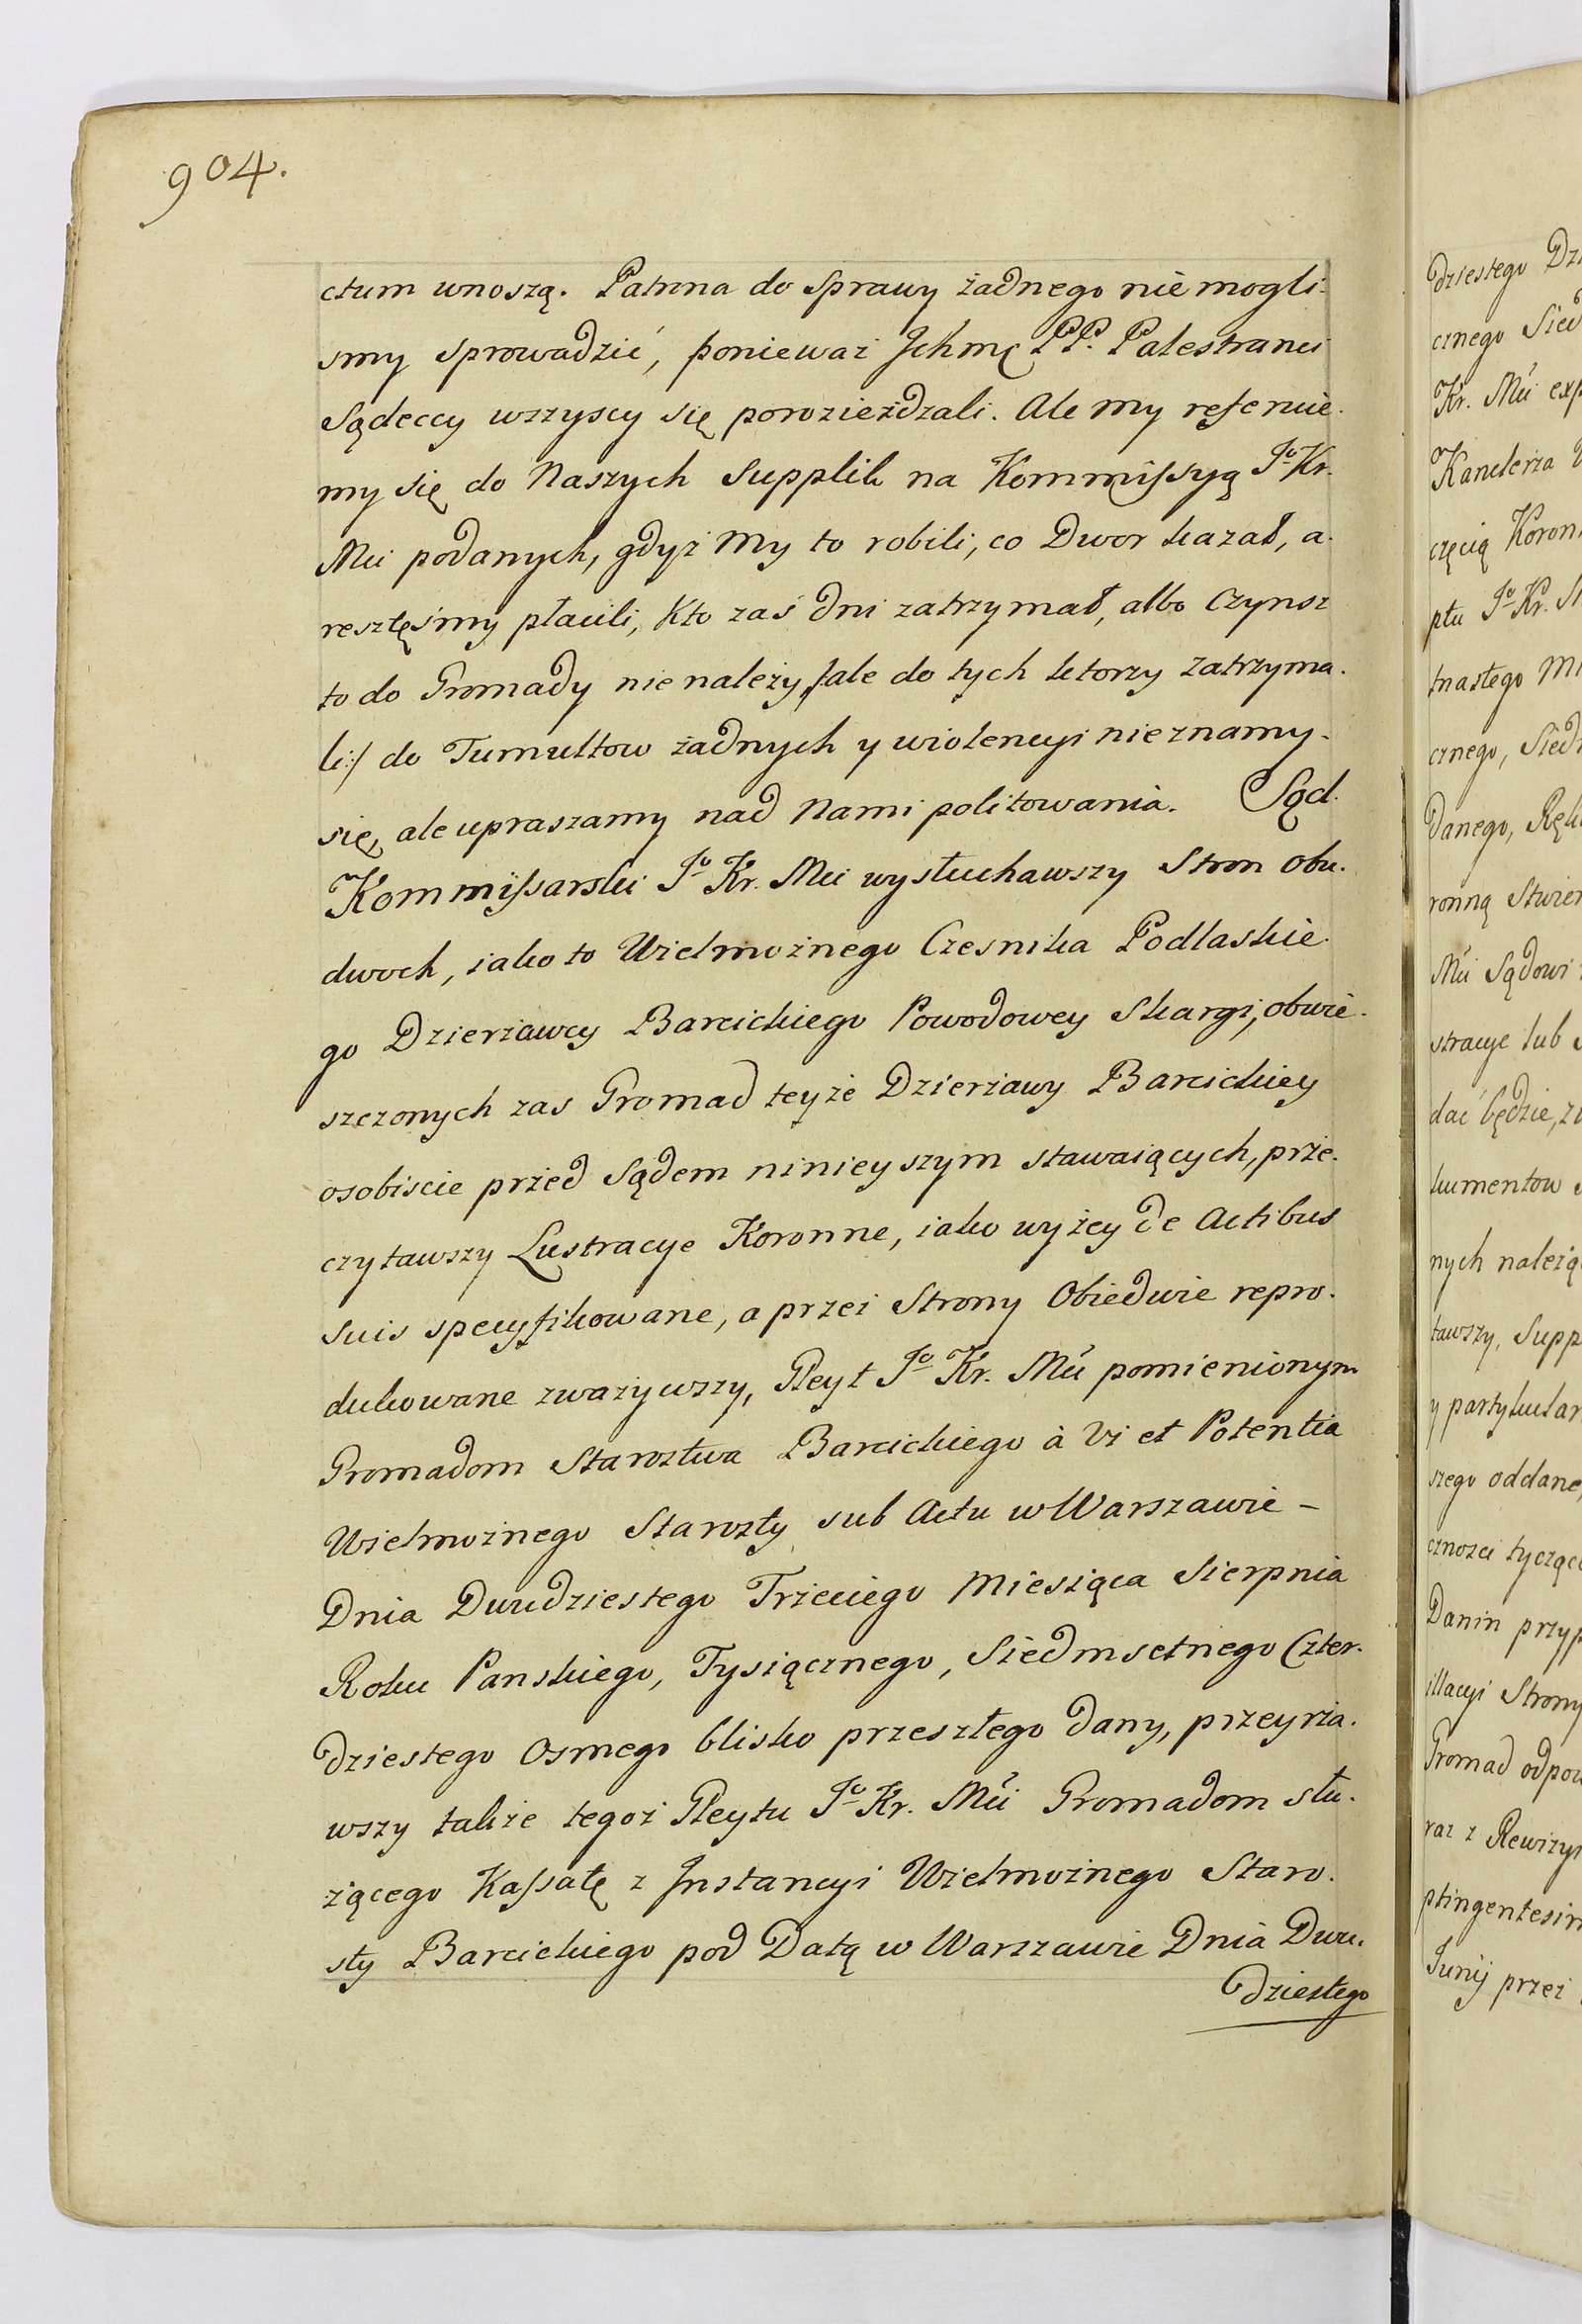 904.
ctum wnoszą. Patrona do Sprawy żadnego nie mogli-
smy sprowadzić, ponieważ Jchmć PP. Palestranci
Sądeccy wszyscy się porozieżdzali. Ale my referuie-
my się do Naszych Supplik na Kommissyą Jº Kr.
Mci podanych, gdyż My to robili, co Dwor kazał, a
resztęśmy płacili, Kto zaś dni zatrzymał, albo Czynsz
to do Gromady nie należy, /ale do tych ktorzy zatrzyma-
li:/ do Tumultow żadnych y wiolencyi nie znamy-
się, ale upraszamy nad Nami politowania. Sąd
Kommissarski Jº Kr. Mci wysłuchawszy Stron obu-
dwoch, iako to Wielmożnego Czesnika Podlaskie-
go Dzierżawcy Barcickiego Powodowey Skargi, obwie-
szczonych zas Gromad teyże Dzierżawy Barcickiey
osobiscie przed Sądem ninieyszym stawaiących, prze-
czytawszy Lustracye Koronne, iako wyżey de Actibus
suis specyfikowane, a przez Strony Obiedwie repro-
dukowane zważywszy, Gleyt Jº Kr. Mci pomienionym
Gromadom Starostwa Barcickiego à Vi et Potentia
Wielmożnego Starosty sub Actu w Warszawie -
Dnia Dwudziestego Trzeciego Miesiąca Sierpnia
Roku Panskiego, Tysiącznego, Siedmsetnego Czter-
dziestego Osmego blisko przeszłego dany, przeyrza-
wszy także tegoż Gleytu Jº Kr. Mci Gromadom słu-
żącego Kassatę z Jnstancyi Wielmożnego Staro-
sty Barcickiego pod Datą w Warszawie Dnia Dwu-
dziestego
dziestego
cznego
Kr. Mci
Kanclerza
częcią
ptu Jº Kr.
tnastego
cznego,
danego,
ronną
Mci Sądowi
stracye lub
dać będzie,
kumentow
nych
tawszy,
y
szego oddane,
cznosci
Danin
illacyi Strony
Gromad
raz z
Junij przez